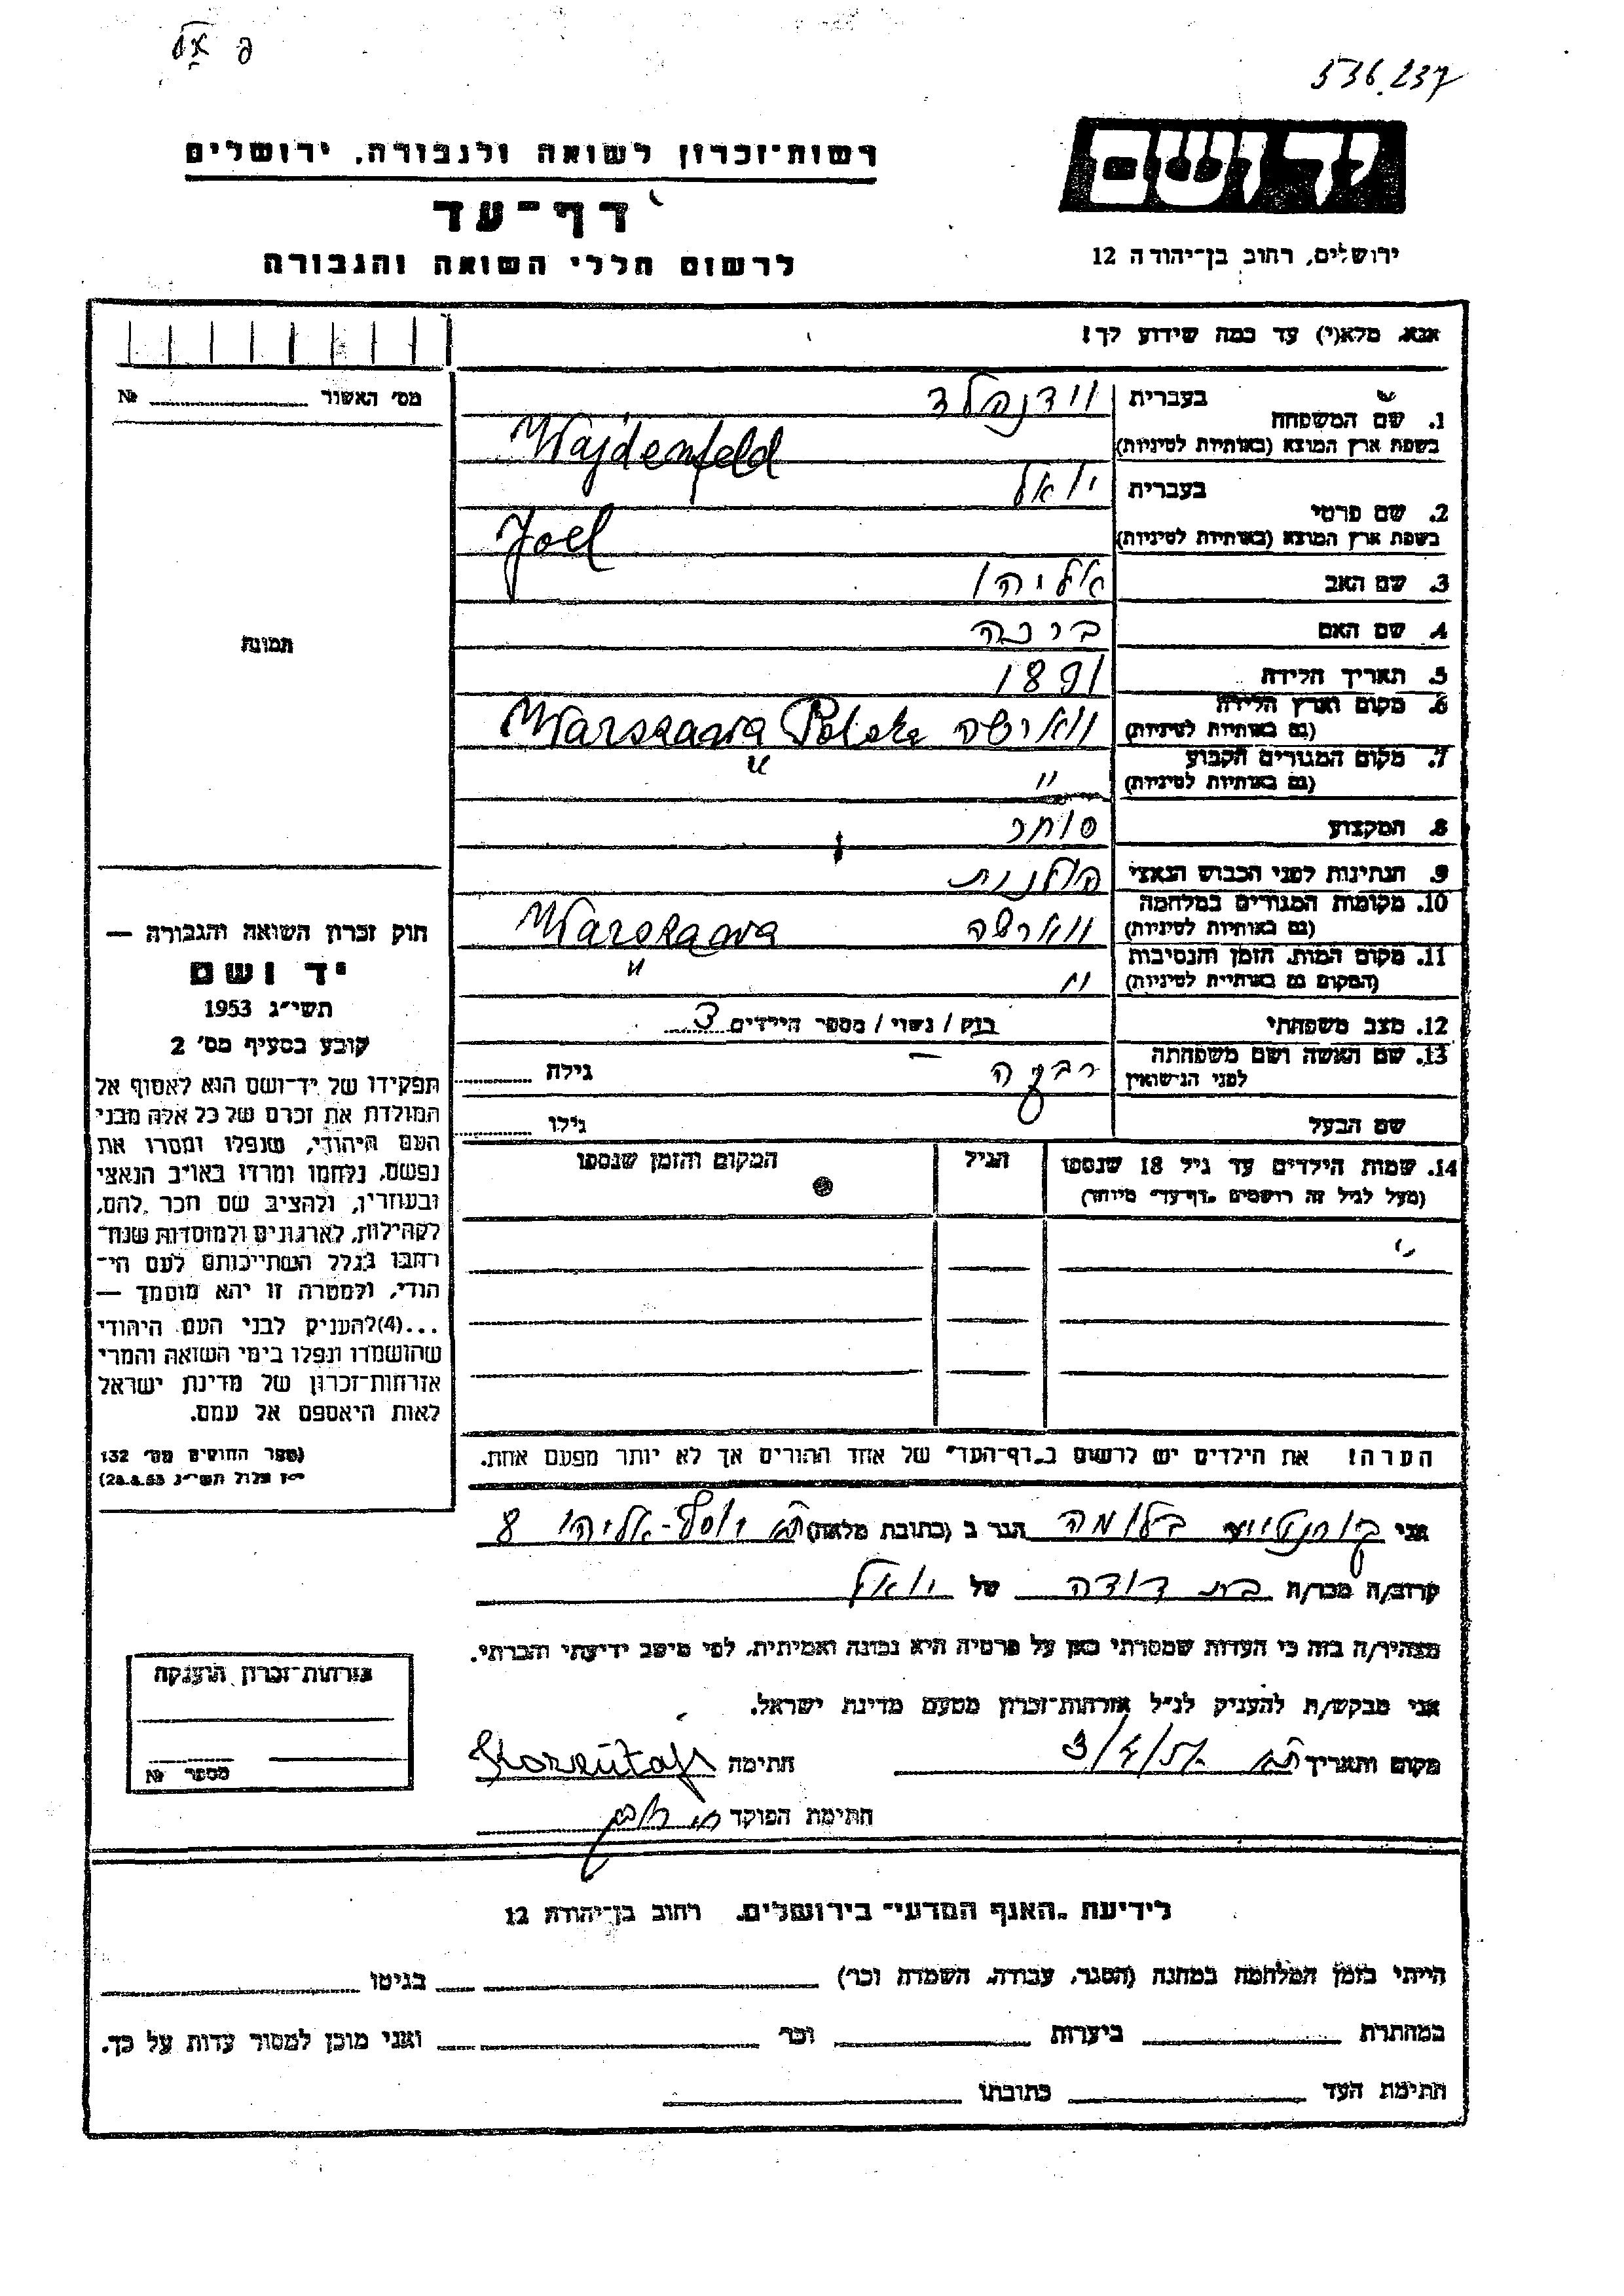 536.237
יד ושם
ירושלים, רחוב בן־יהודה 12
רשות־זכרון לשואה ולגבורה, ירושלים
דף־עד
לרשום חללי השואה והגבורה
אנא, מלא(י) עד כמה שידוע לך!
מס׳ האשור № 
1. שם המשפחה בעברית ווידנפלד
בשפת ארץ המוצא (באותיות לטיניות) Wajdenfeld
2. שם פרטי בעברית יואל
בשפת ארץ המוצא (באותיות לטיניות) Joel
3. שם האב אליהו
4. שם האם בינה
5. תאריך הלידה 1891
6. מקום וארץ הלידה (גם באותיות לטיניות) ווארשה Warszawa Polska
7. מקום המגורים הקבוע (גם באותיות לטיניות) " "
8. המקצוע סוחר
9. הנתינות לפני הכבוש הנאצי פולנית
10. מקומות המגורים במלחמה (גם באותיות לטיניות) ווארשה Warszawa
11. מקום המות, הזמן והנסיבות (המקום גם באותיות לטיניות) " "
12. מצב משפחתי רווק / נשוי / מספר הילדים 3
13. שם האשה ושם משפחתה לפני הנישואין רבקה גילה
שם הבעל גילו
14. שמות הילדים עד גיל 18 שנספו
(מעל לגיל זה רושמים „דף־עד״ מיוחד)
הגיל
המקום והזמן שנספו
הערה! את הילדים יש לרשום ב„דף־העד״ של אחד ההורים אך לא יותר מפעם אחת.
תמונה
חוק זכרון השואה והגבורה —
יד ושם
תשי״ג 1953
קובע בסעיף מס׳ 2
תפקידו של יד־ושם הוא לאסוף אל
המולדת את זכרם של כל אלה מבני
העם היהודי, שנפלו ומסרו את
נפשם, נלחמו ומרדו באויב הנאצי
ובעוזריו, ולהציב שם וזכר להם,
לקהילות, לארגונים ולמוסדות שנח־
רבו בגלל השתייכותם לעם הי־
הודי, ולמטרה זו יהא מוסמך —
...(4)להעניק לבני העם היהודי
שהושמדו ונפלו בימי השואה והמרי
אזרחות־זכרון של מדינת ישראל
לאות היאספם אל עמם.
(ספר החוקים מס׳ 132
י״ז אלול תשי״ג 28.8.53)
אני בלומה הגר ב (כתובת מלאה) ת״א יוסף־אליהו 8
קרוב/ה מכר/ה בת דודה של יואל
מצהיר/ה בזה כי העדות שמסרתי כאן על פרטיה היא נכונה ואמיתית, לפי מיטב ידיעתי והכרתי.
אני מבקש/ת להעניק לנ״ל אזרחות־זכרון מטעם מדינת ישראל.
מקום ותאריך ת״א חתימה
חתימת הפוקד
אזרחות־זכרון הוענקה
מספר №
לידיעת „האגף המדעי״ בירושלים. רחוב בן־יהודה 12
הייתי בזמן המלחמה במחנה (הסגר, עבודה, השמדה וכו׳) בגיטו
במחתרת ביערות וכו׳ ואני מוכן למסור עדות על כך.
חתימת העד כתובתו